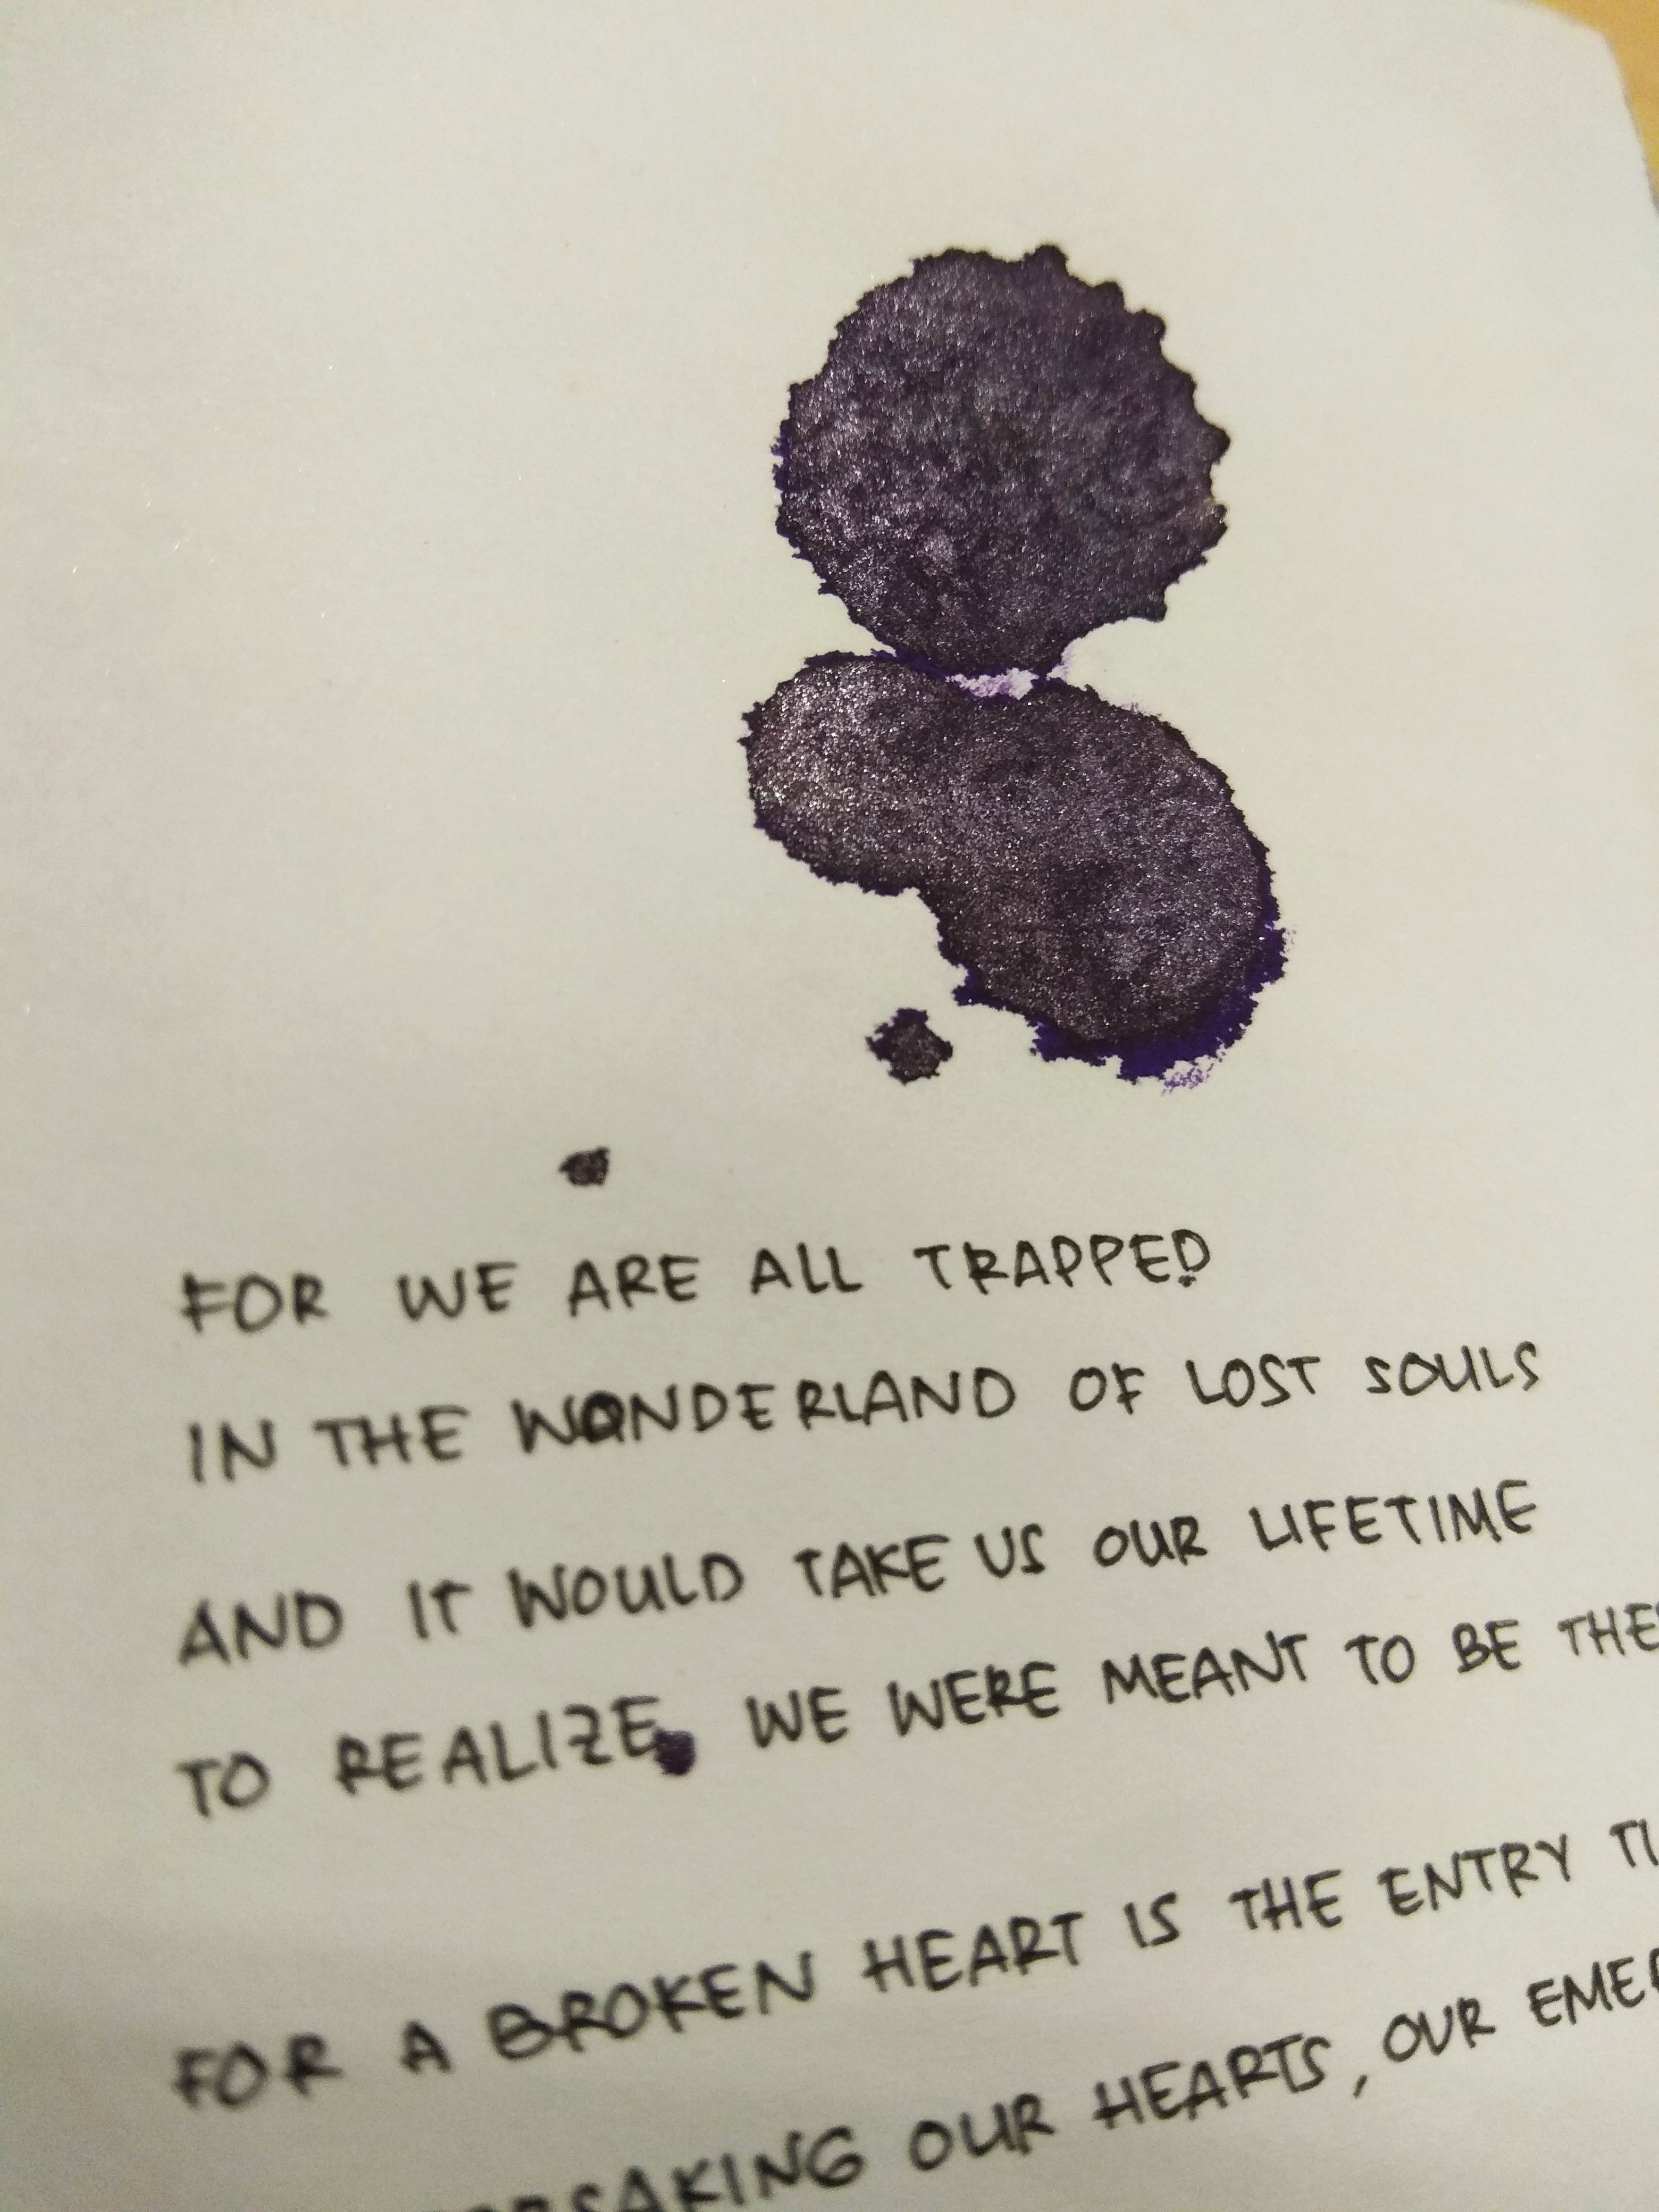 FOR WE ARE ALL TRAPPED
IN THE WONDERLAND OF LOST SOULS
AND IT WOULD TAKE US OUR LIFETIME
TO REALIZE, WE WERE MEANT TO BE
FOR A BROKEN HEART IS THE ENTRY
OUR HEARTS, OUR